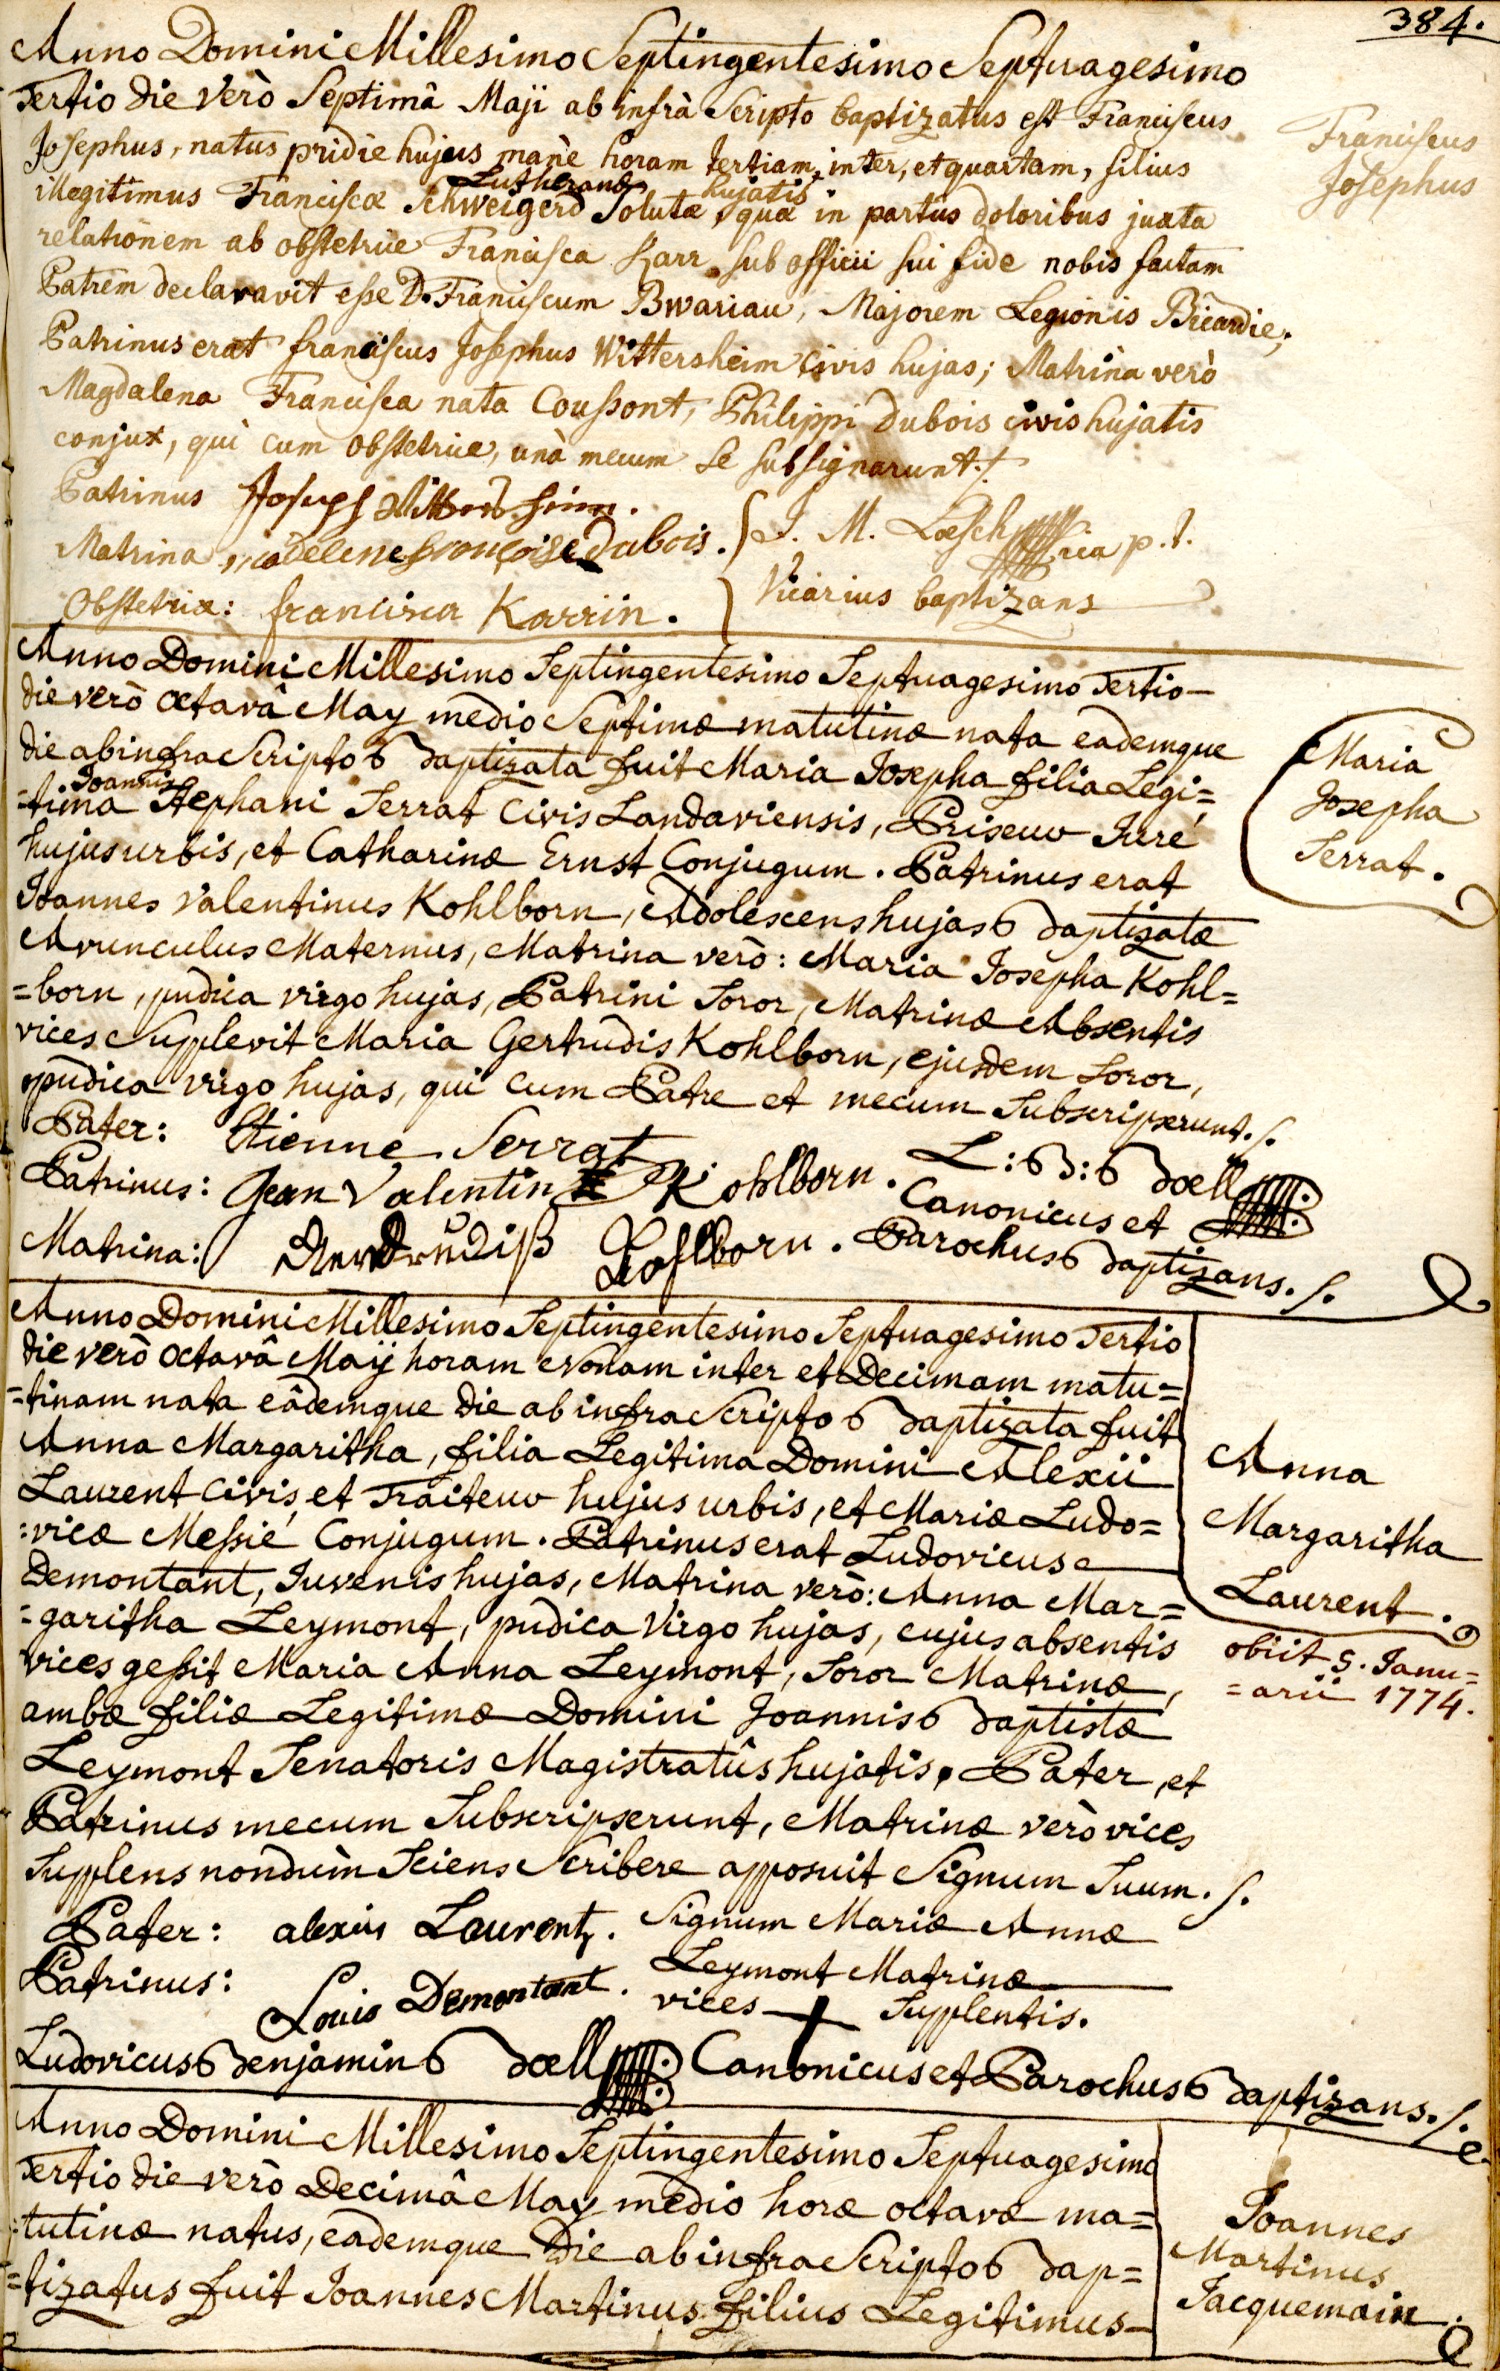 384.
Anno Domini Millesimo Septingentesimo Septuagesimo
Tertio die verò Septimâ Maji ab infrà Scripto baptizatus est Franciscus
Josephus, natus pridie hujus manè horam tertiam, inter, et quartam, filius
Franciscus
Josephus
Lutheranæ hujatis
illegitimus Franciscæ Schweigerd Solutæ, quæ in partûs doloribus juxta
relationem ab obstetrice Francisca Karr sub officii sui fide nobis factam
Patrem declaravit esse D. Franciscum Bwariau, Majorem Legionis Bicardie;
Patrinus erat franciscus Josephus Wittersheim civis hujas; Matrina verò
Magdalena Francisca nata Coussont, Philippi Dubois civis hujatis
conjux, qui cum Obstetrice, unà mecum se subsignarunt ./.
Patrinus Joseph Wittersheim.
Matrina madelene francoise dubois. J. M. Loesch p.t.
Obstetrix: francisca Karrin. Vicarius baptizans
Anno Domini Millesimo Septingentesimo Septuagesimo Tertio
die verò octavâ May medio Septimæ matutinæ nata eademque
die ab infra Scripto Baptizata fuit Maria Josepha filia Legi=
Joannis
=tima Stephani Serrat Civis Landaviensis, Priseur Juré
hujus urbis, et Catharinæ Ernst Conjugum. Patrinus erat
Joannes Valentinus Kohlborn, Adolescens hujas Baptizatæ
Avunculus Maternus, Matrina verò: Maria Josepha Kohl=
=born, pudica virgo hujas, Patrini Soror, Matrinæ Absentis
vices Supplevit Maria Gertrudis Kohlborn, ejusdem Soror,
pudica virgo hujas, qui cum Patre et mecum Subscripserunt. /.
Maria
Josepha
Serrat.
Pater: Etienne Serrat
Patrinus: Jean Valentin Kohlborn. L: B: Boell
Canonicus et
Matrina: Kohlborn. Parochus Baptizans. /.
Anno Domini Millesimo Septingentesimo Septuagesimo Tertio
die verò octavâ Maij horam Nonam inter et Decimam matu=
=tinam nata eâdemque die ab infra Scripto Baptizata fuit
Anna Margaritha, filia Legitima Domini Alexii
Laurent Civis, et Traiteur hujus urbis, et Mariæ Ludo=
=vicæ Messié Conjugum. Patrinus erat Ludovicus
Demontant, Juvenis hujas, Matrina verò: Anna Mar=
=garitha Leymont, pudica Virgo hujas, cujus absentis
vices gessit Maria Anna Leymont, Soror Matrinæ,
ambæ filiæ Legitimæ Domini Joannis Baptistæ
Leymont Senatoris Magistratûs hujatis. Pater, et
Patrinus mecum Subscripserunt, Matrinæ verò vices
Supplens nondùm Sciens Scribere apposuit Signum Suum. /.
Anna
Margaritha
Laurent.
obiit 5. Janu=
=arii 1774.
Pater: alexius Laurent. Signum Mariæ Annæ
Patrinus: Louis Demontant. Leymont Matrinæ
vices + Supplentis.
Ludovicus Benjamin Boell Canonicus et Parochus Baptizans. /.
Anno Domini Millesimo Septingentesimo Septuagesimo
Tertio die verò Decimâ May medio horæ octavæ ma=
=tutinæ natus, eademque Die ab infra Scripto Bap=
=tizatus fuit Joannes Martinus filius Legitimus
Joannes
Martinus
Jacquemain.